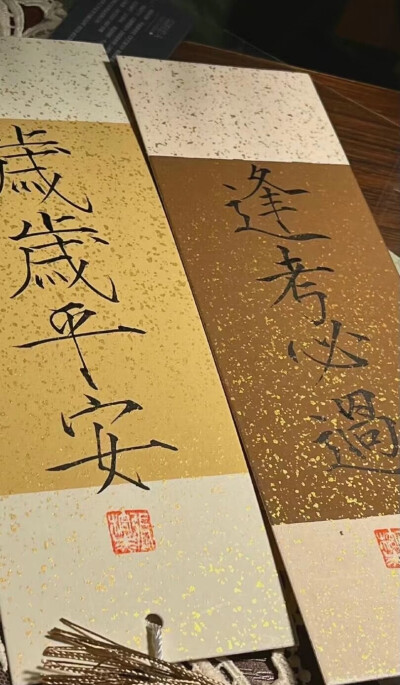 歲歲平安
逢考必過